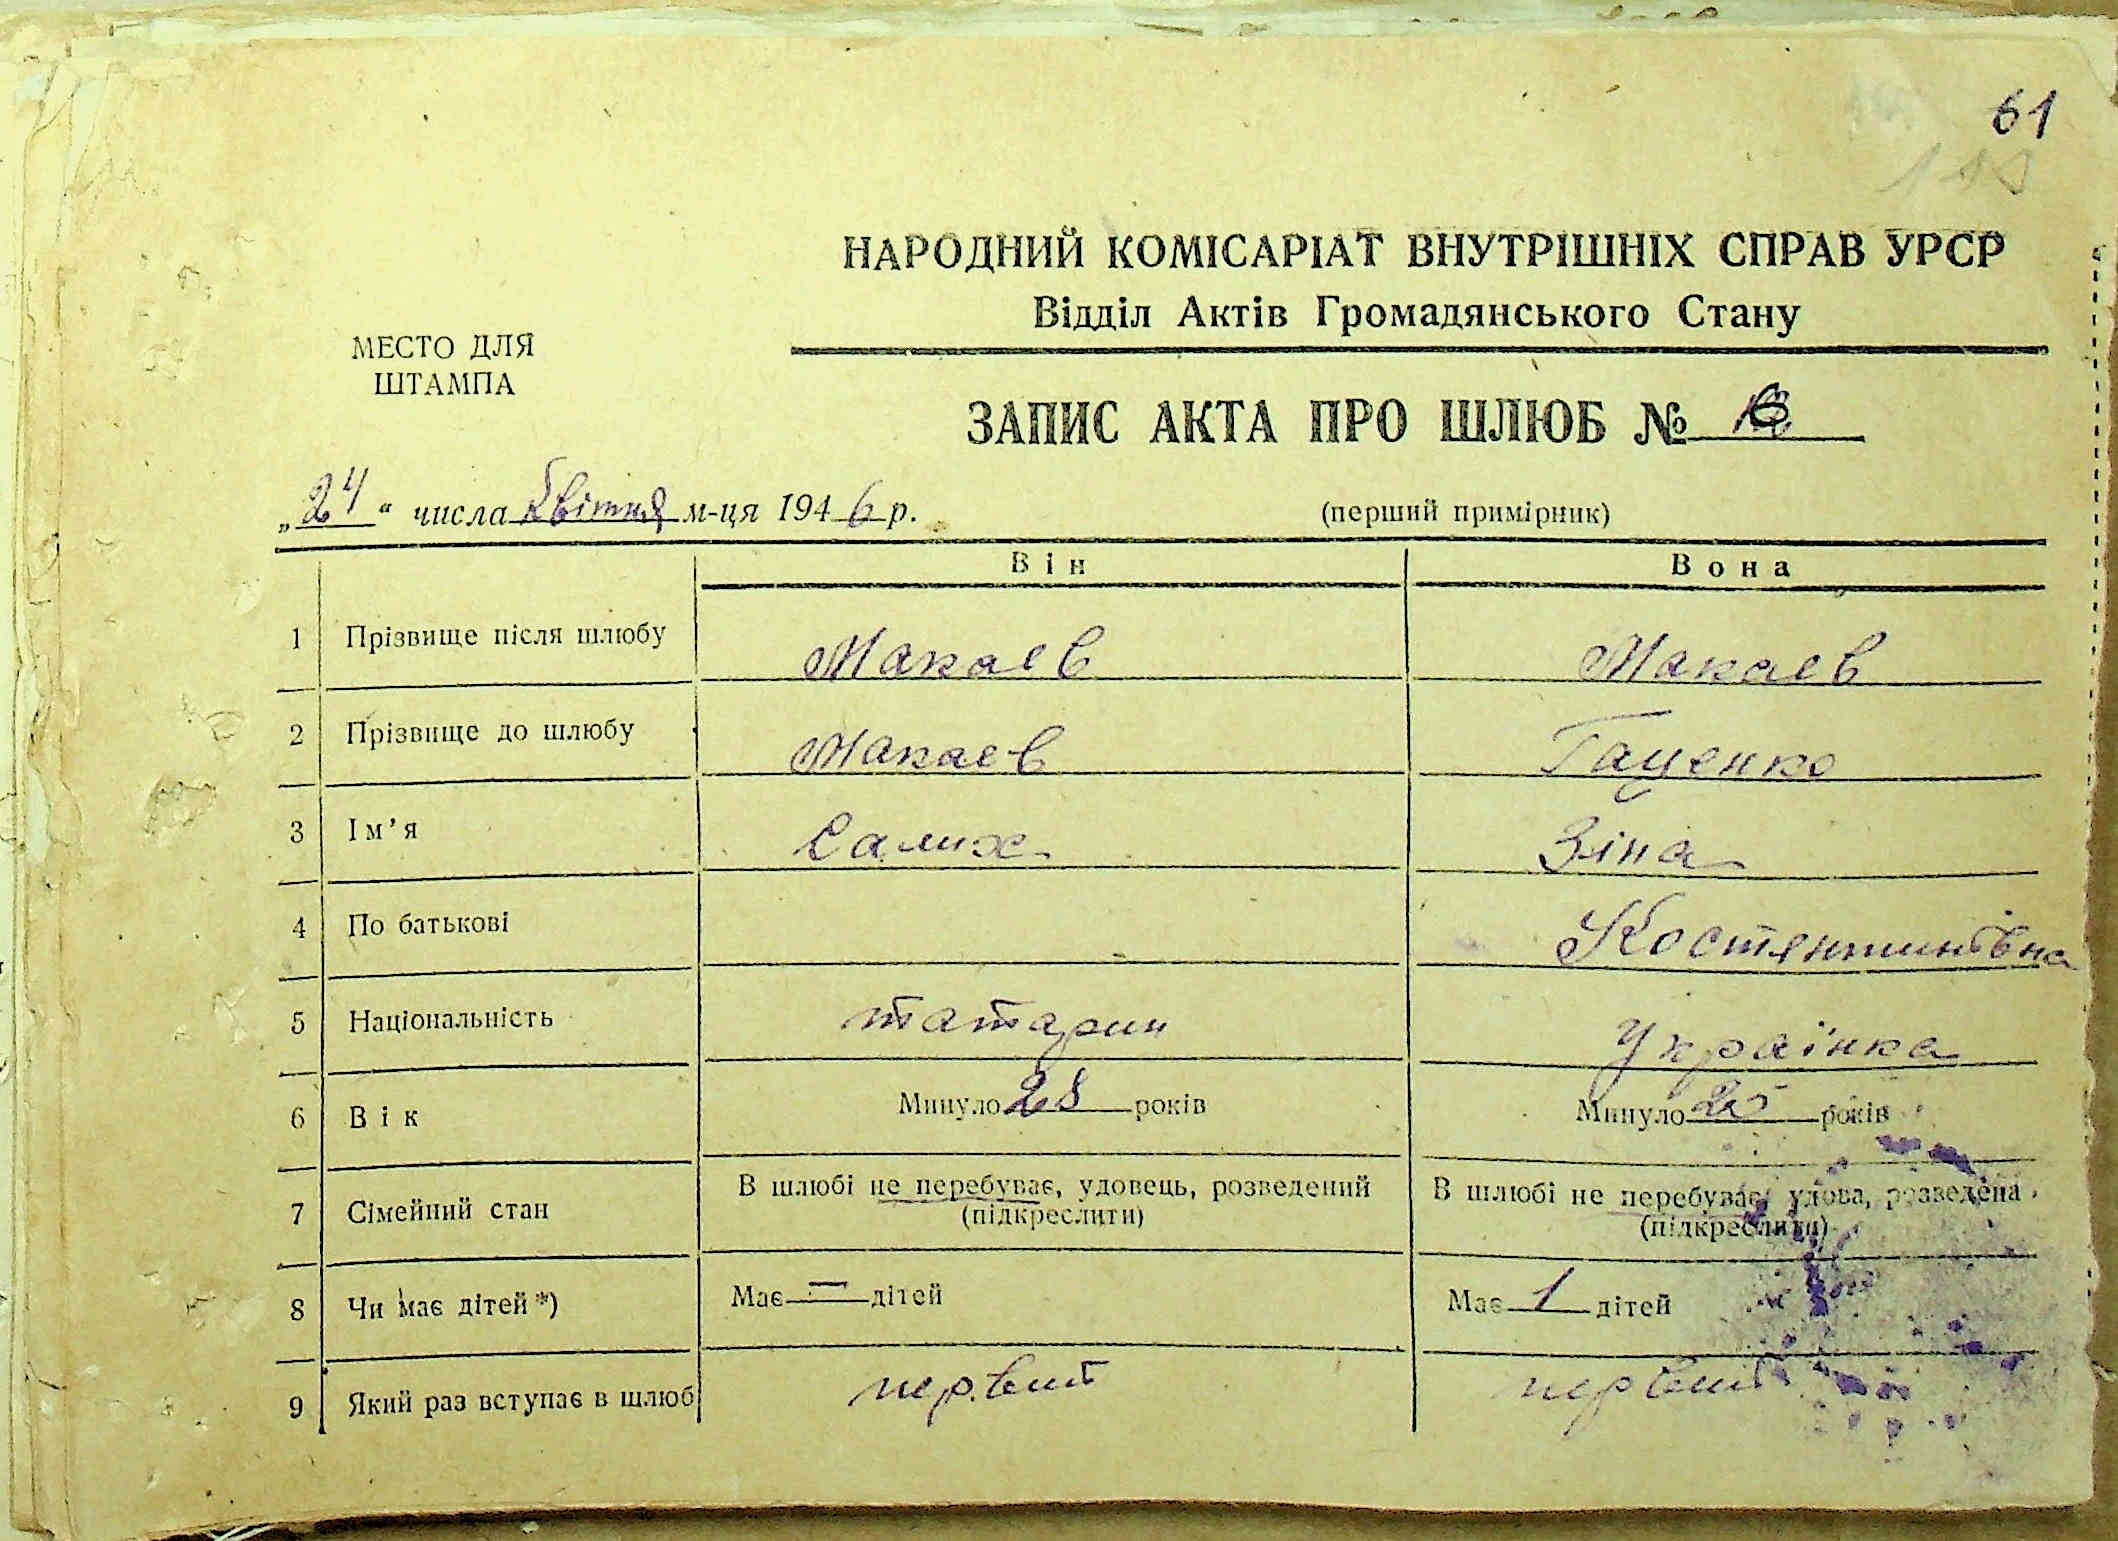 61
НАРОДНИЙ КОМІСАРІАТ ВНУТРІШНІХ СПРАВ УРСР
Відділ Актів Громадянського Стану
МЕСТО ДЛЯ
ШТАМПА
ЗАПИС АКТА ПРО ШЛЮБ №
„24“ числа Квітня м-ця 1946 р.
(перший примірник)
Він Вона
1 Прізвище після шлюбу Макаев Макаев
2 Прізвище до шлюбу Макаев Гаценко
3 Ім’я Салих Зіна
4 По батькові Костянтинівна
5 Національність татарин Українка
6 Вік Минуло 28 років Минуло 25 років
7 Сімейний стан В шлюбі не перебуває, удовець, розведений В шлюбі не перебуває, удова, розведена
(підкреслити) (підкреслити)
8 Чи має дітей *) Має — дітей Має 1 дітей
9 Який раз вступає в шлюб первий первий